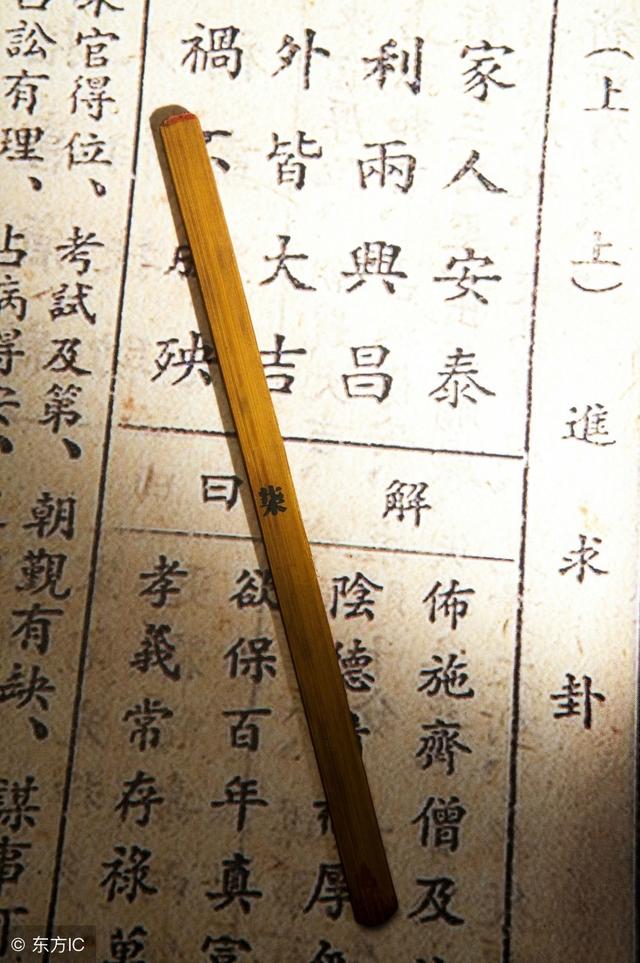 （上上）進求卦
家人安泰
利兩興昌
外皆大吉
禍殃
解曰
佈施齊僧及
陰德厚
欲保百年真富
孝義常存祿萬
柒
求官得位、考試及第、朝覲有缺、謀事
訟有理、占病得安、
© 东方IC